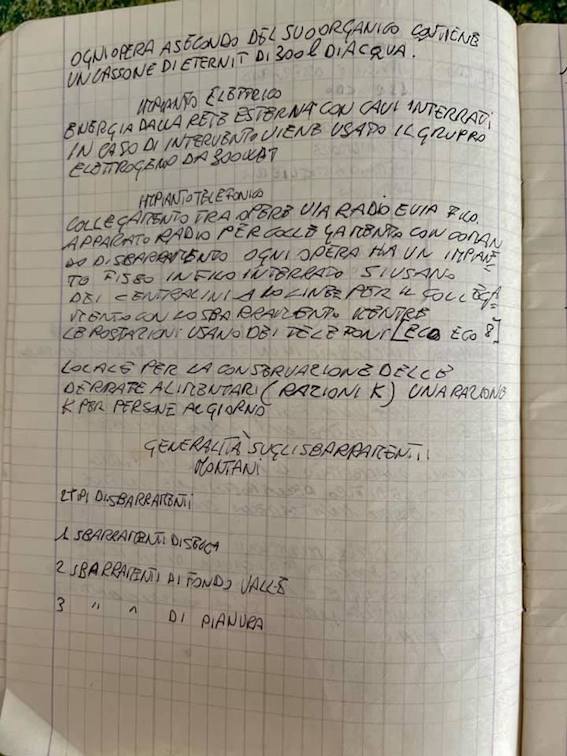 OGNI OPERA A SECONDO DEL SUO ORGANICO CONTIENE
UN CASSONE DI ETERNIT DI 300 l DI ACQUA.
IMPIANTO ELETTRICO
ENERGIA DALLA RETE ESTERNA CON CAVI INTERRATI
IN CASO DI INTERVENTO VIENE USATO IL GRUPPO
ELETTROGENO DA 300 WAT
IMPIANTO TELEFONICO
COLLEGAMENTO TRA OPERE VIA RADIO E VIA FILO.
APPARATO RADIO PER COLLEGAMENTO CON COMAN
DO DI SBARRAMENTO OGNI OPERA HA UN IMPIAN
TO FISSO IN FILO INTERRATO SI USANO
DEI CENTRALINI A 10 LINEE PER IL COLLEGA
MENTO CON LO SBARRAMENTO MENTRE
LE POSTAZIONI USANO DEI TELEFONI [ECO ECO 8]
LOCALE PER LA CONSERVAZIONE DELLE
DERRATE ALIMENTARI (RAZIONI K) UNA RAZIONE
K PER PERSONE AL GIORNO
GENERALITÀ SUGLI SBARRAMENTI
MONTANI
2 TIPI DI SBARRAMENTI
1 SBARRAMENTI DI
2 SBARRAMENTI DI FONDO VALLE
3 " " DI PIANURA